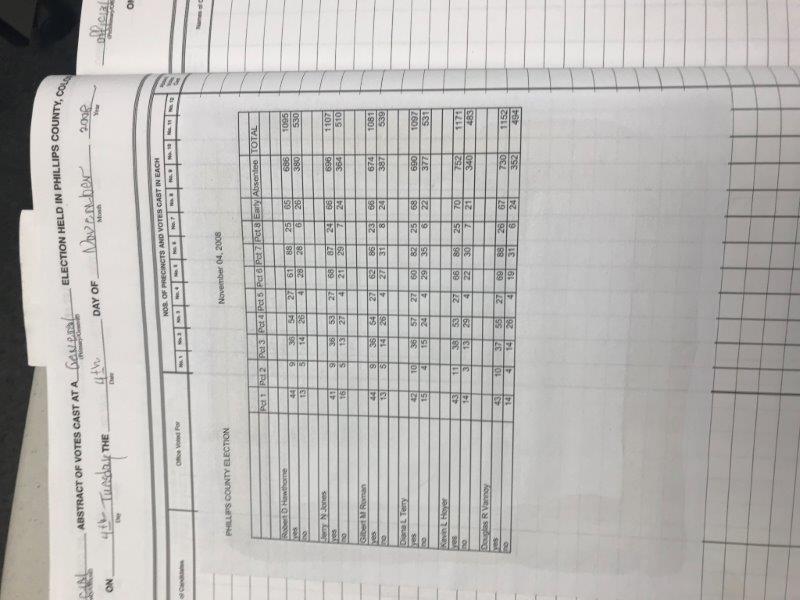 ABSTRACT OF VOTES CAST AT A General ELECTION HELD IN PHILLIPS COUNTY,
ON 4th Tuesday THE 4th DAY OF November 2008
Day Date Month Year
NOS. OF PRECINCTS AND VOTES CAST IN EACH
of Candidates Office Voted For No. 1 No. 2 No. 3 No. 4 No. 5 No. 6 No. 7 No. 8 No. 9 No. 10 No. 11 No. 12
PHILLIPS COUNTY ELECTION November 04, 2008
Pct 1 Pct 2 Pct 3 Pct 4 Pct 5 Pct 6 Pct 7 Pct 8 Early Absentee TOTAL
Robert D Hawthorne
yes 44 9 36 54 27 61 88 25 65 686 1095
no 13 5 14 26 4 28 28 6 26 380 530
Jerry N Jones
yes 41 9 36 53 27 68 87 24 66 696 1107
no 16 5 13 27 4 21 29 7 24 364 510
Gilbert M Roman
yes 44 9 36 54 27 62 86 23 66 674 1081
no 13 5 14 26 4 27 31 8 24 387 539
Diana L Terry
yes 42 10 36 57 27 60 82 25 68 690 1097
no 15 4 15 24 4 29 35 6 22 377 531
Kevin L Hoyer
yes 43 11 38 53 27 66 86 25 70 752 1171
no 14 3 13 29 4 22 30 7 21 340 483
Douglas R Vannoy
yes 43 10 37 55 27 69 88 26 67 730 1152
no 14 4 14 26 4 19 31 6 24 352 494
official
Names of C